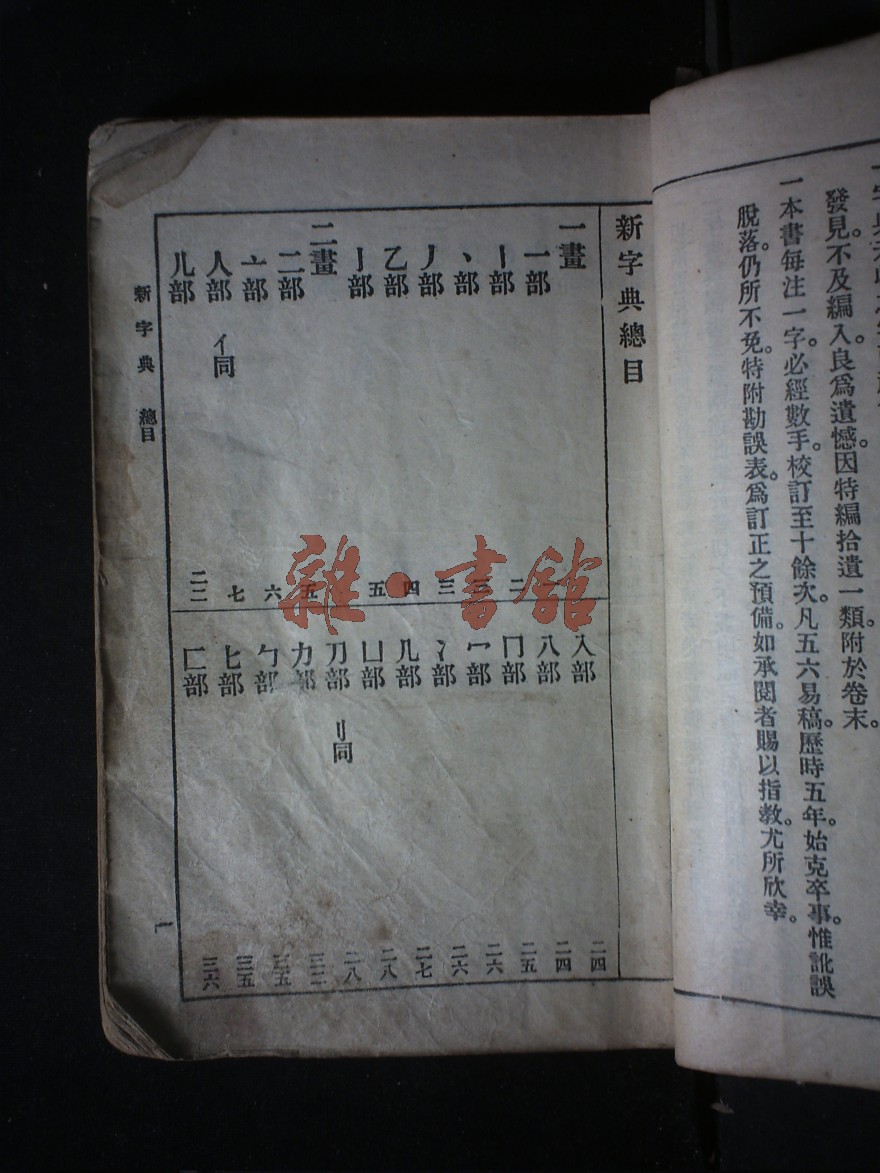 發見。不及編入。良爲遺憾。因特編拾遺一類。附於卷末。
一本書每注一字。必經數手校訂。至十餘次。凡五六易稿。歷時五年。始克卒事。惟訛誤
脫落。仍所不免。特附勘誤表。爲訂正之預備。如承閱者賜以指敎。尤所欣幸。
新字典總目
一畫
一部
丨部 二
丶部 三
丿部 三
乙部 四
亅部 五
二畫
二部 五
亠部 六
人部 亻同 七
儿部 二二
入部 二四
八部 二四
冂部 二五
冖部 二六
冫部 二六
几部 二七
凵部 二八
刀部 刂同 二八
力部 三二
勹部 三五
匕部 三五
匚部 三六
新字典 總目
一
雜·書館